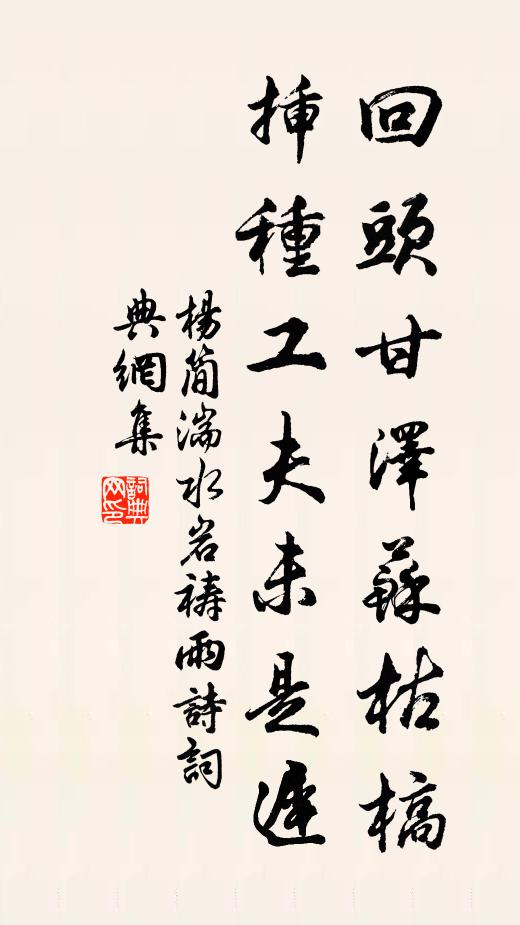 回頭甘澤蘇枯槁
挿種工夫未是遲
楊簡湍水岩禱雨詩詞
典網集
詞典
网印